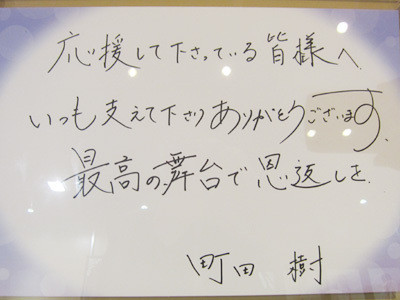 応援して下さっている皆様へ
いつも支えて下さりありがとうございます。
最高の舞台で恩返しを。
町田 樹